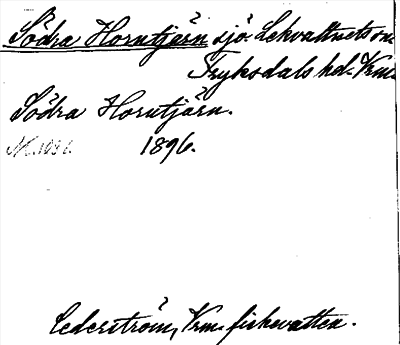 Södra Horntjärn sjö. Lekvattnets sn.
Fryksdals hd. Vrm.
Södra Horntjärn.
1896.
Cederström, Vrm. fiskevatten.